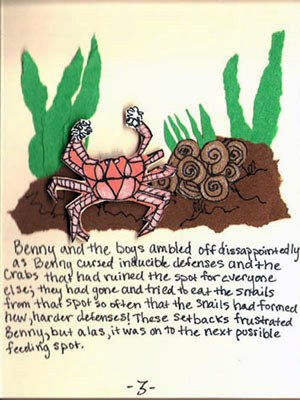 Benny and the boys ambled off dissappointedly
as Benny cursed inducible defenses and the
crabs that had ruined the spot for everyone
else; they had gone and tried to eat the snails
from that spot so often that the snails had formed
new, harder defenses! These setbacks frustrated
Benny, but alas, it was on to the next possible
feeding spot.
-3-